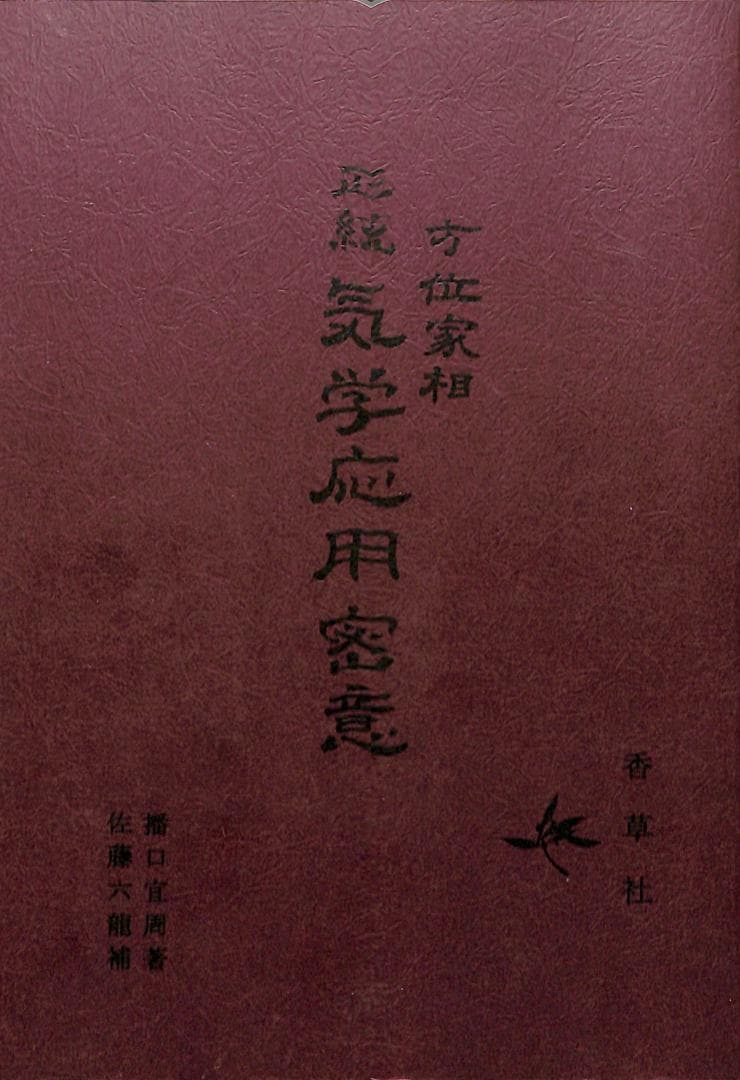 方位家相
統気学応用密意
香草社
播口宜周著
佐藤六龍補